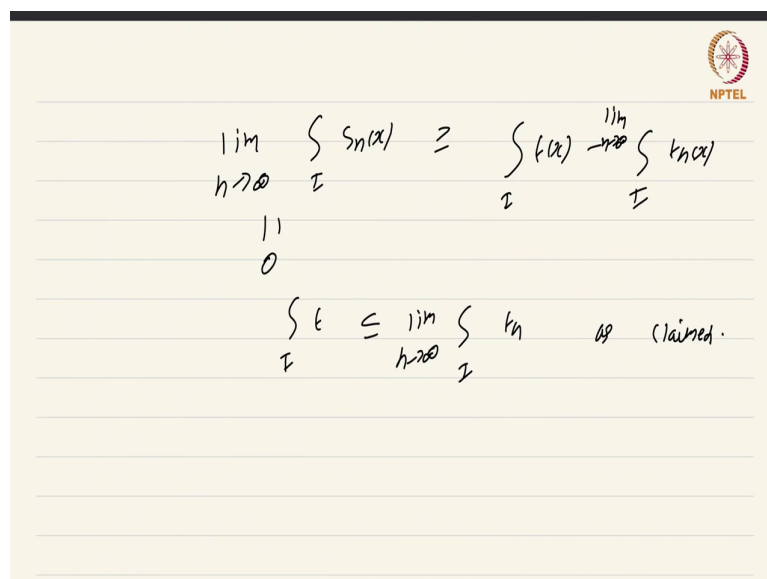 NPTEL
lim n→∞ ∫_I Sn(x) ≥ ∫_I t(x) - lim n→∞ ∫_I tn(x)
||
0
∫_I t ≤ lim n→∞ ∫_I tn as claimed.